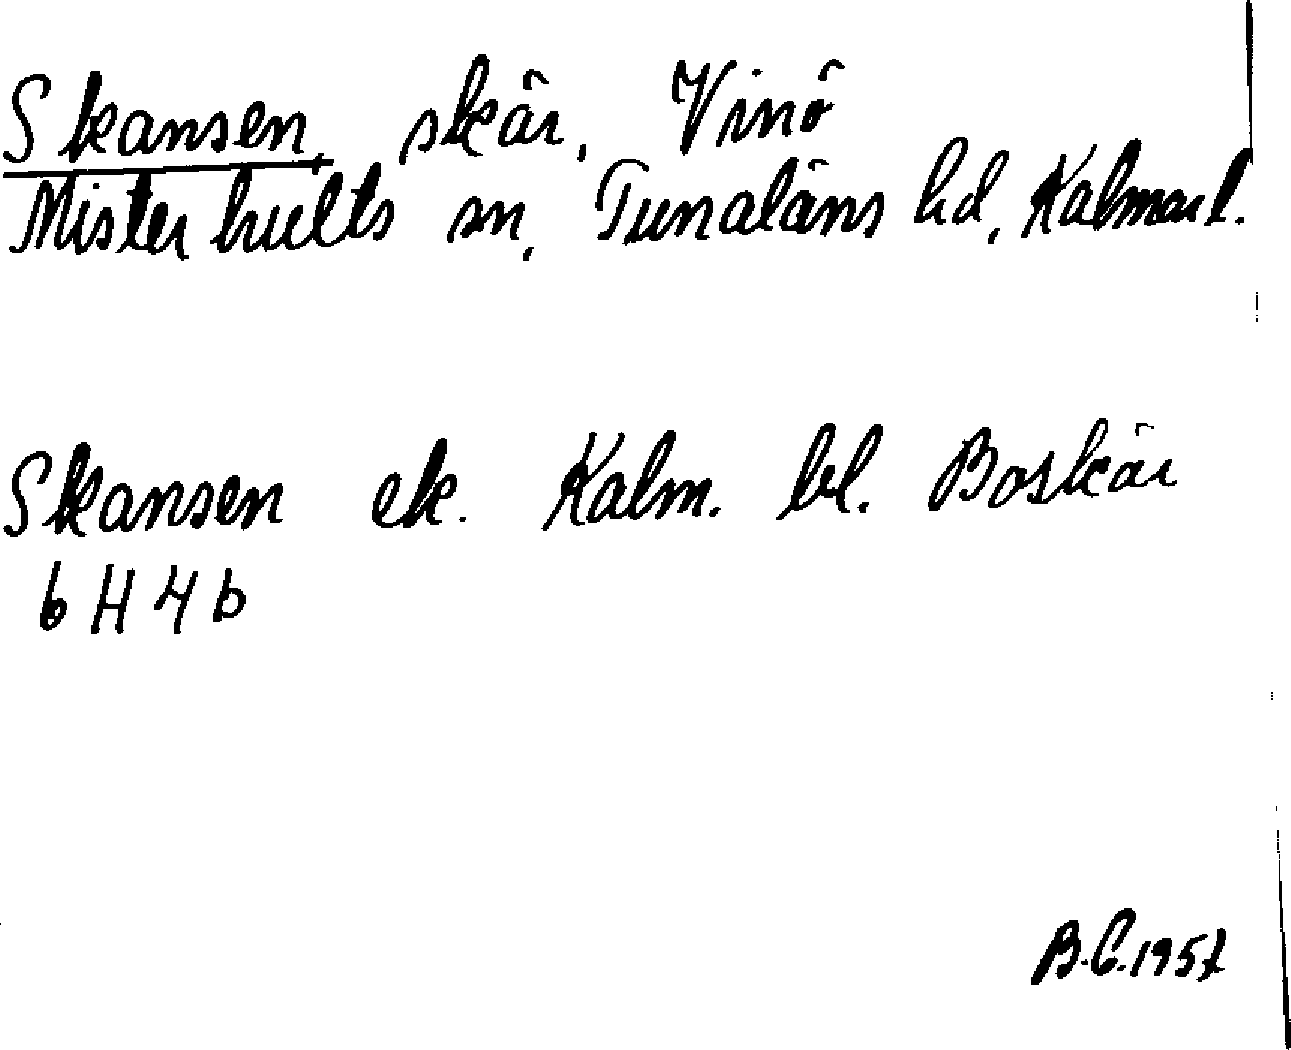 Skansen, skär, Vinö
Misterhults sn, Tunaläns hd, Kalmar l.
Skansen ek. Kalm. bl. Boskär
6 H 4 b
B.C. 1957